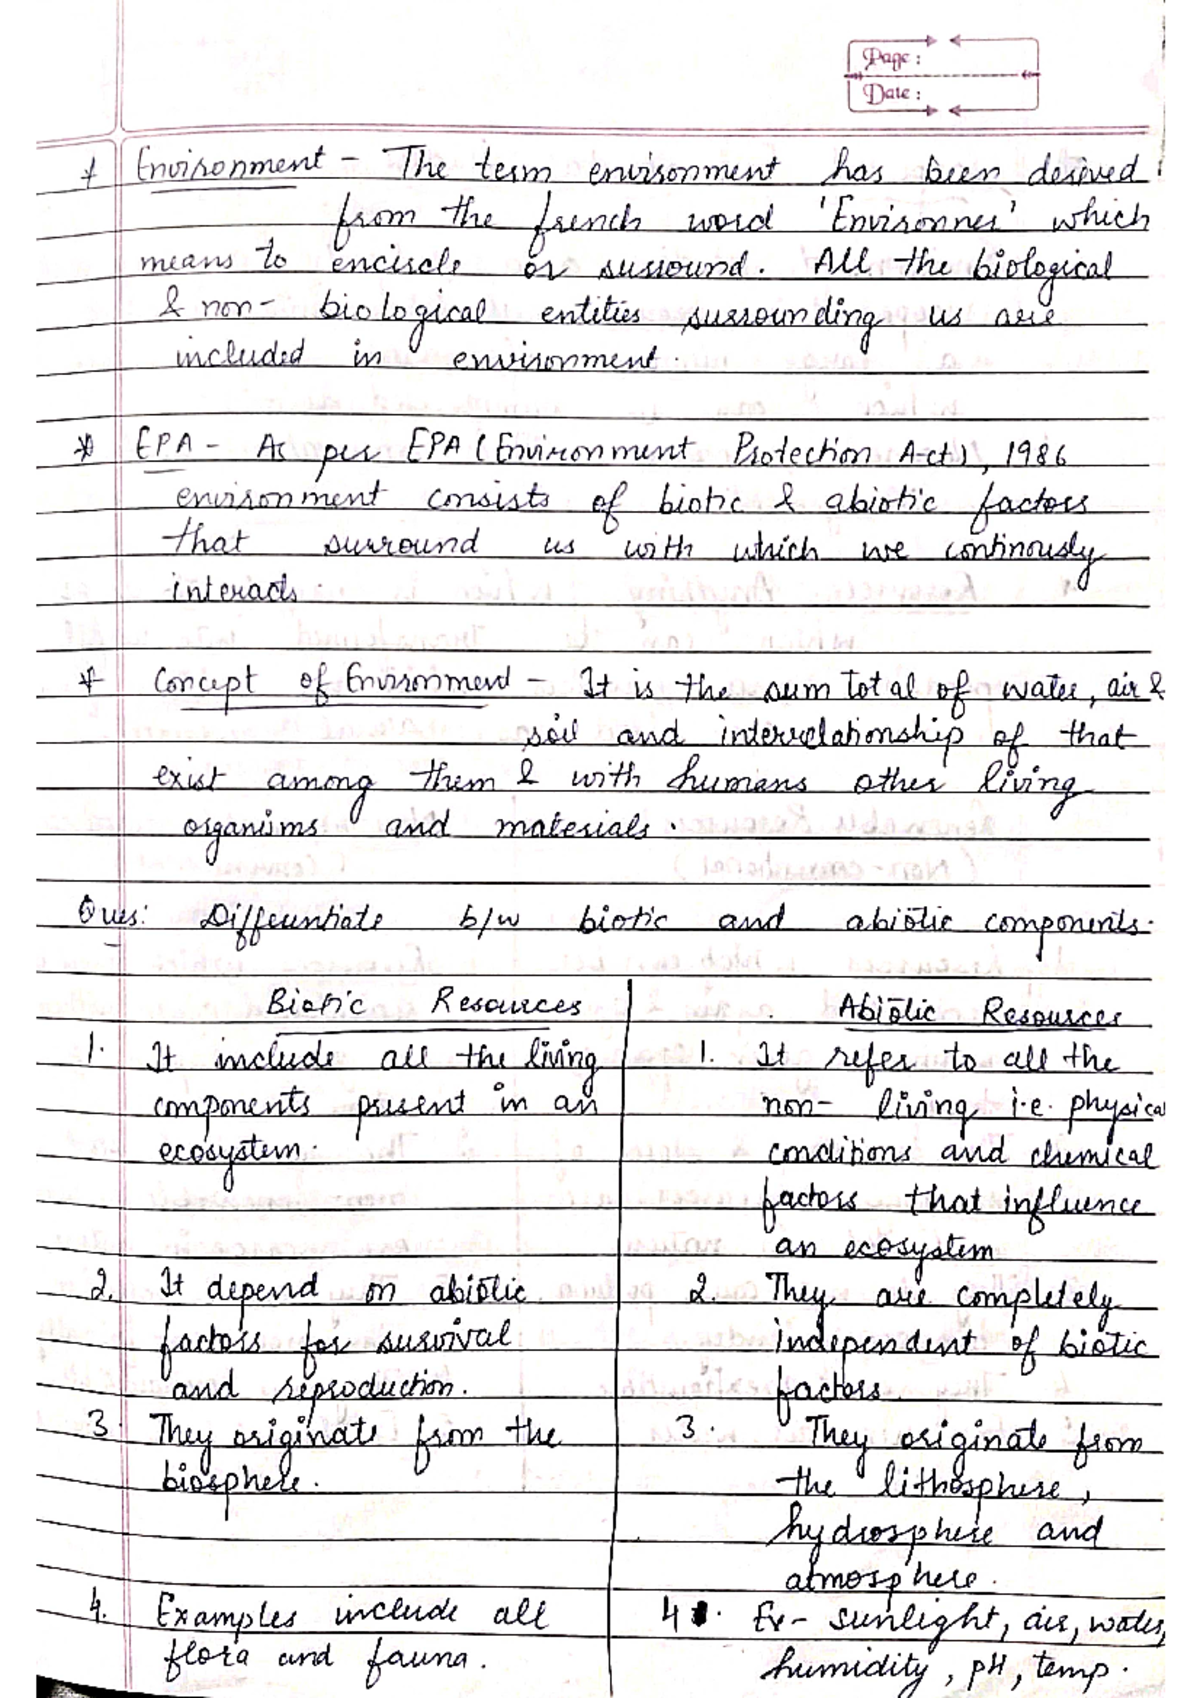 Page :
Date :
* Environment - The term environment has been derived
from the french word 'Environner' which
means to encircle or surround. All the biological
& non- biological entities surrounding us are
included in environment.
* EPA - As per EPA (Environment Protection Act), 1986
environment consists of biotic & abiotic factors
that surround us with which we continously
interacts.
* Concept of Environment - It is the sum total of water, air &
soil and interrelationship of that
exist among them & with humans other living
organisms and materials.
Ques: Differentiate b/w biotic and abiotic components.
Biotic Resources
1. It include all the living
components present in an
ecosystem.
2. It depend on abiotic
factors for survival
and reproduction.
3. They originate from the
biosphere.
4. Examples include all
flora and fauna.
Abiotic Resources
1. It refer to all the
non- living i.e. physical
conditions and chemical
factors that influence
an ecosystem
2. They are completely
independent of biotic
factors.
3. They originate from
the lithosphere,
hydrosphere and
atmosphere.
4. Ex- sunlight, air, water,
humidity, pH, temp.